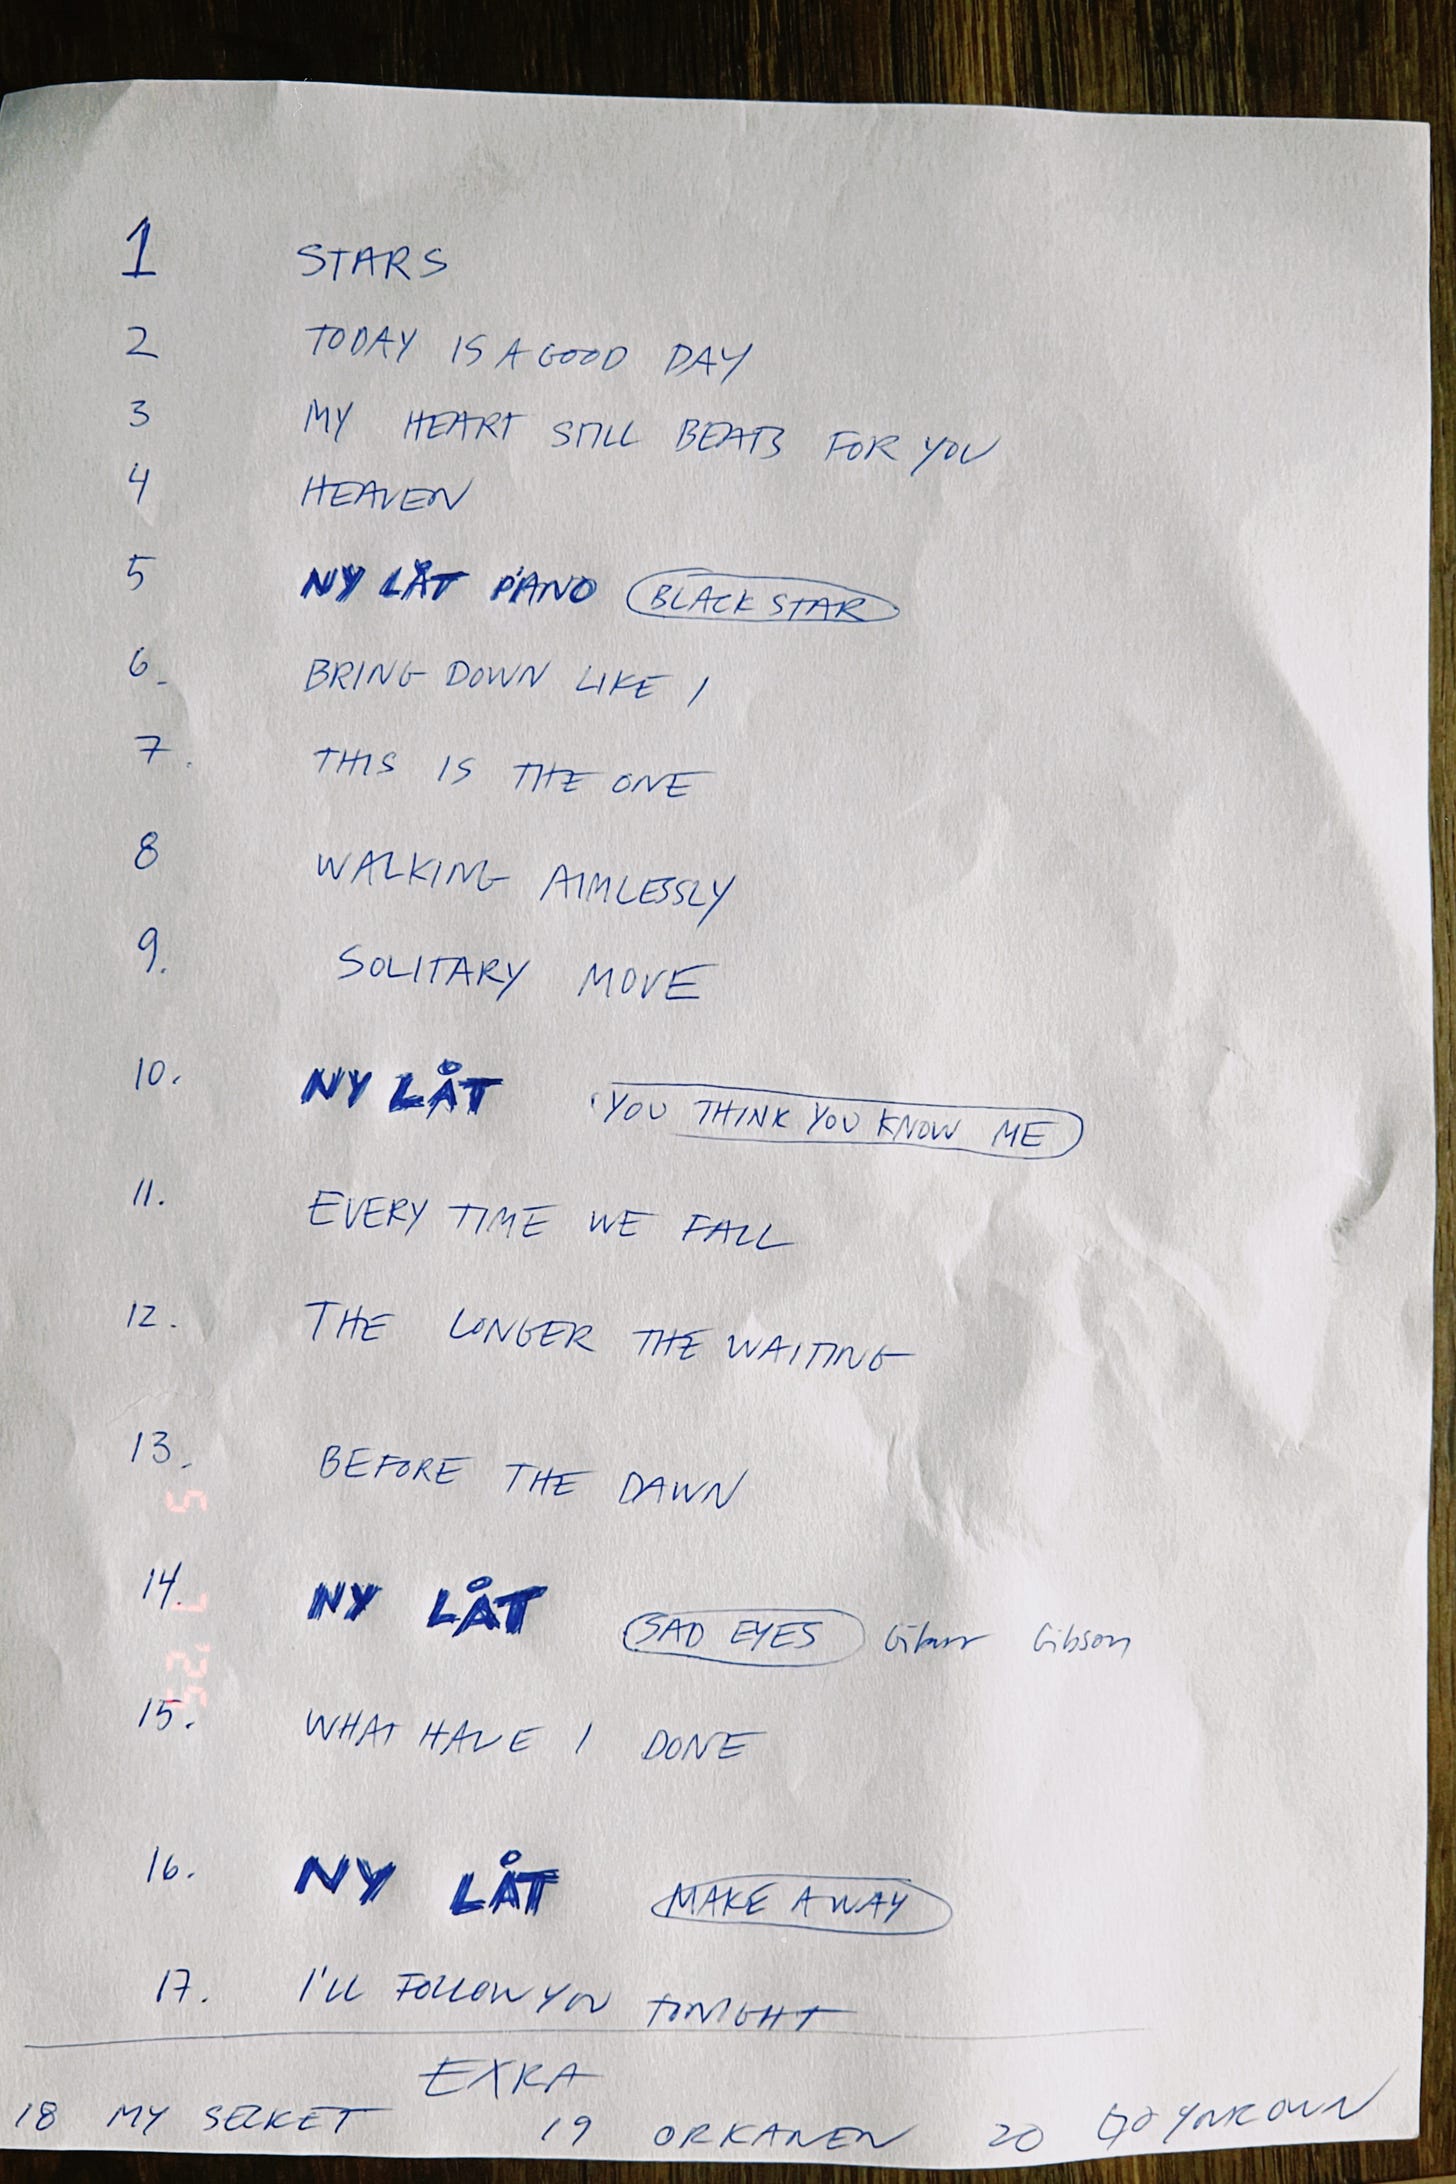 1 STARS
2 TODAY IS A GOOD DAY
3 MY HEART STILL BEATS FOR YOU
4 HEAVEN
5 NY LÅT PIANO BLACK STAR
6. BRING DOWN LIKE I
7. THIS IS THE ONE
8 WALKING AIMLESSLY
9. SOLITARY MOVE
10. NY LÅT YOU THINK YOU KNOW ME
11. EVERY TIME WE FALL
12. THE LONGER THE WAITING
13. BEFORE THE DAWN
14. NY LÅT SAD EYES Gibson
15. WHAT HAVE I DONE
16. NY LÅT MAKE A WAY
17. I'LL FOLLOW YOU TONIGHT
EXRA
18 MY SECRET 19 ORKANEN 20
5 7 '25